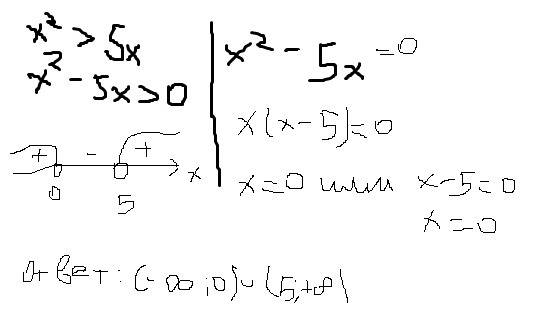 x² > 5x
x² - 5x > 0
+ - + x
0 5
x² - 5x = 0
x(x-5)=0
x=0 или x-5=0
x=0
Ответ: (-∞;0)∪(5;+∞)